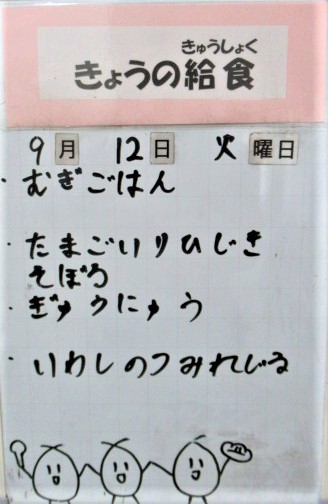 きゅうしょく
きょうの給食
9月 12日 火曜日
・むぎごはん
・たまごいりひじき
そぼろ
・ぎゅうにゅう
・いわしのつみれじる